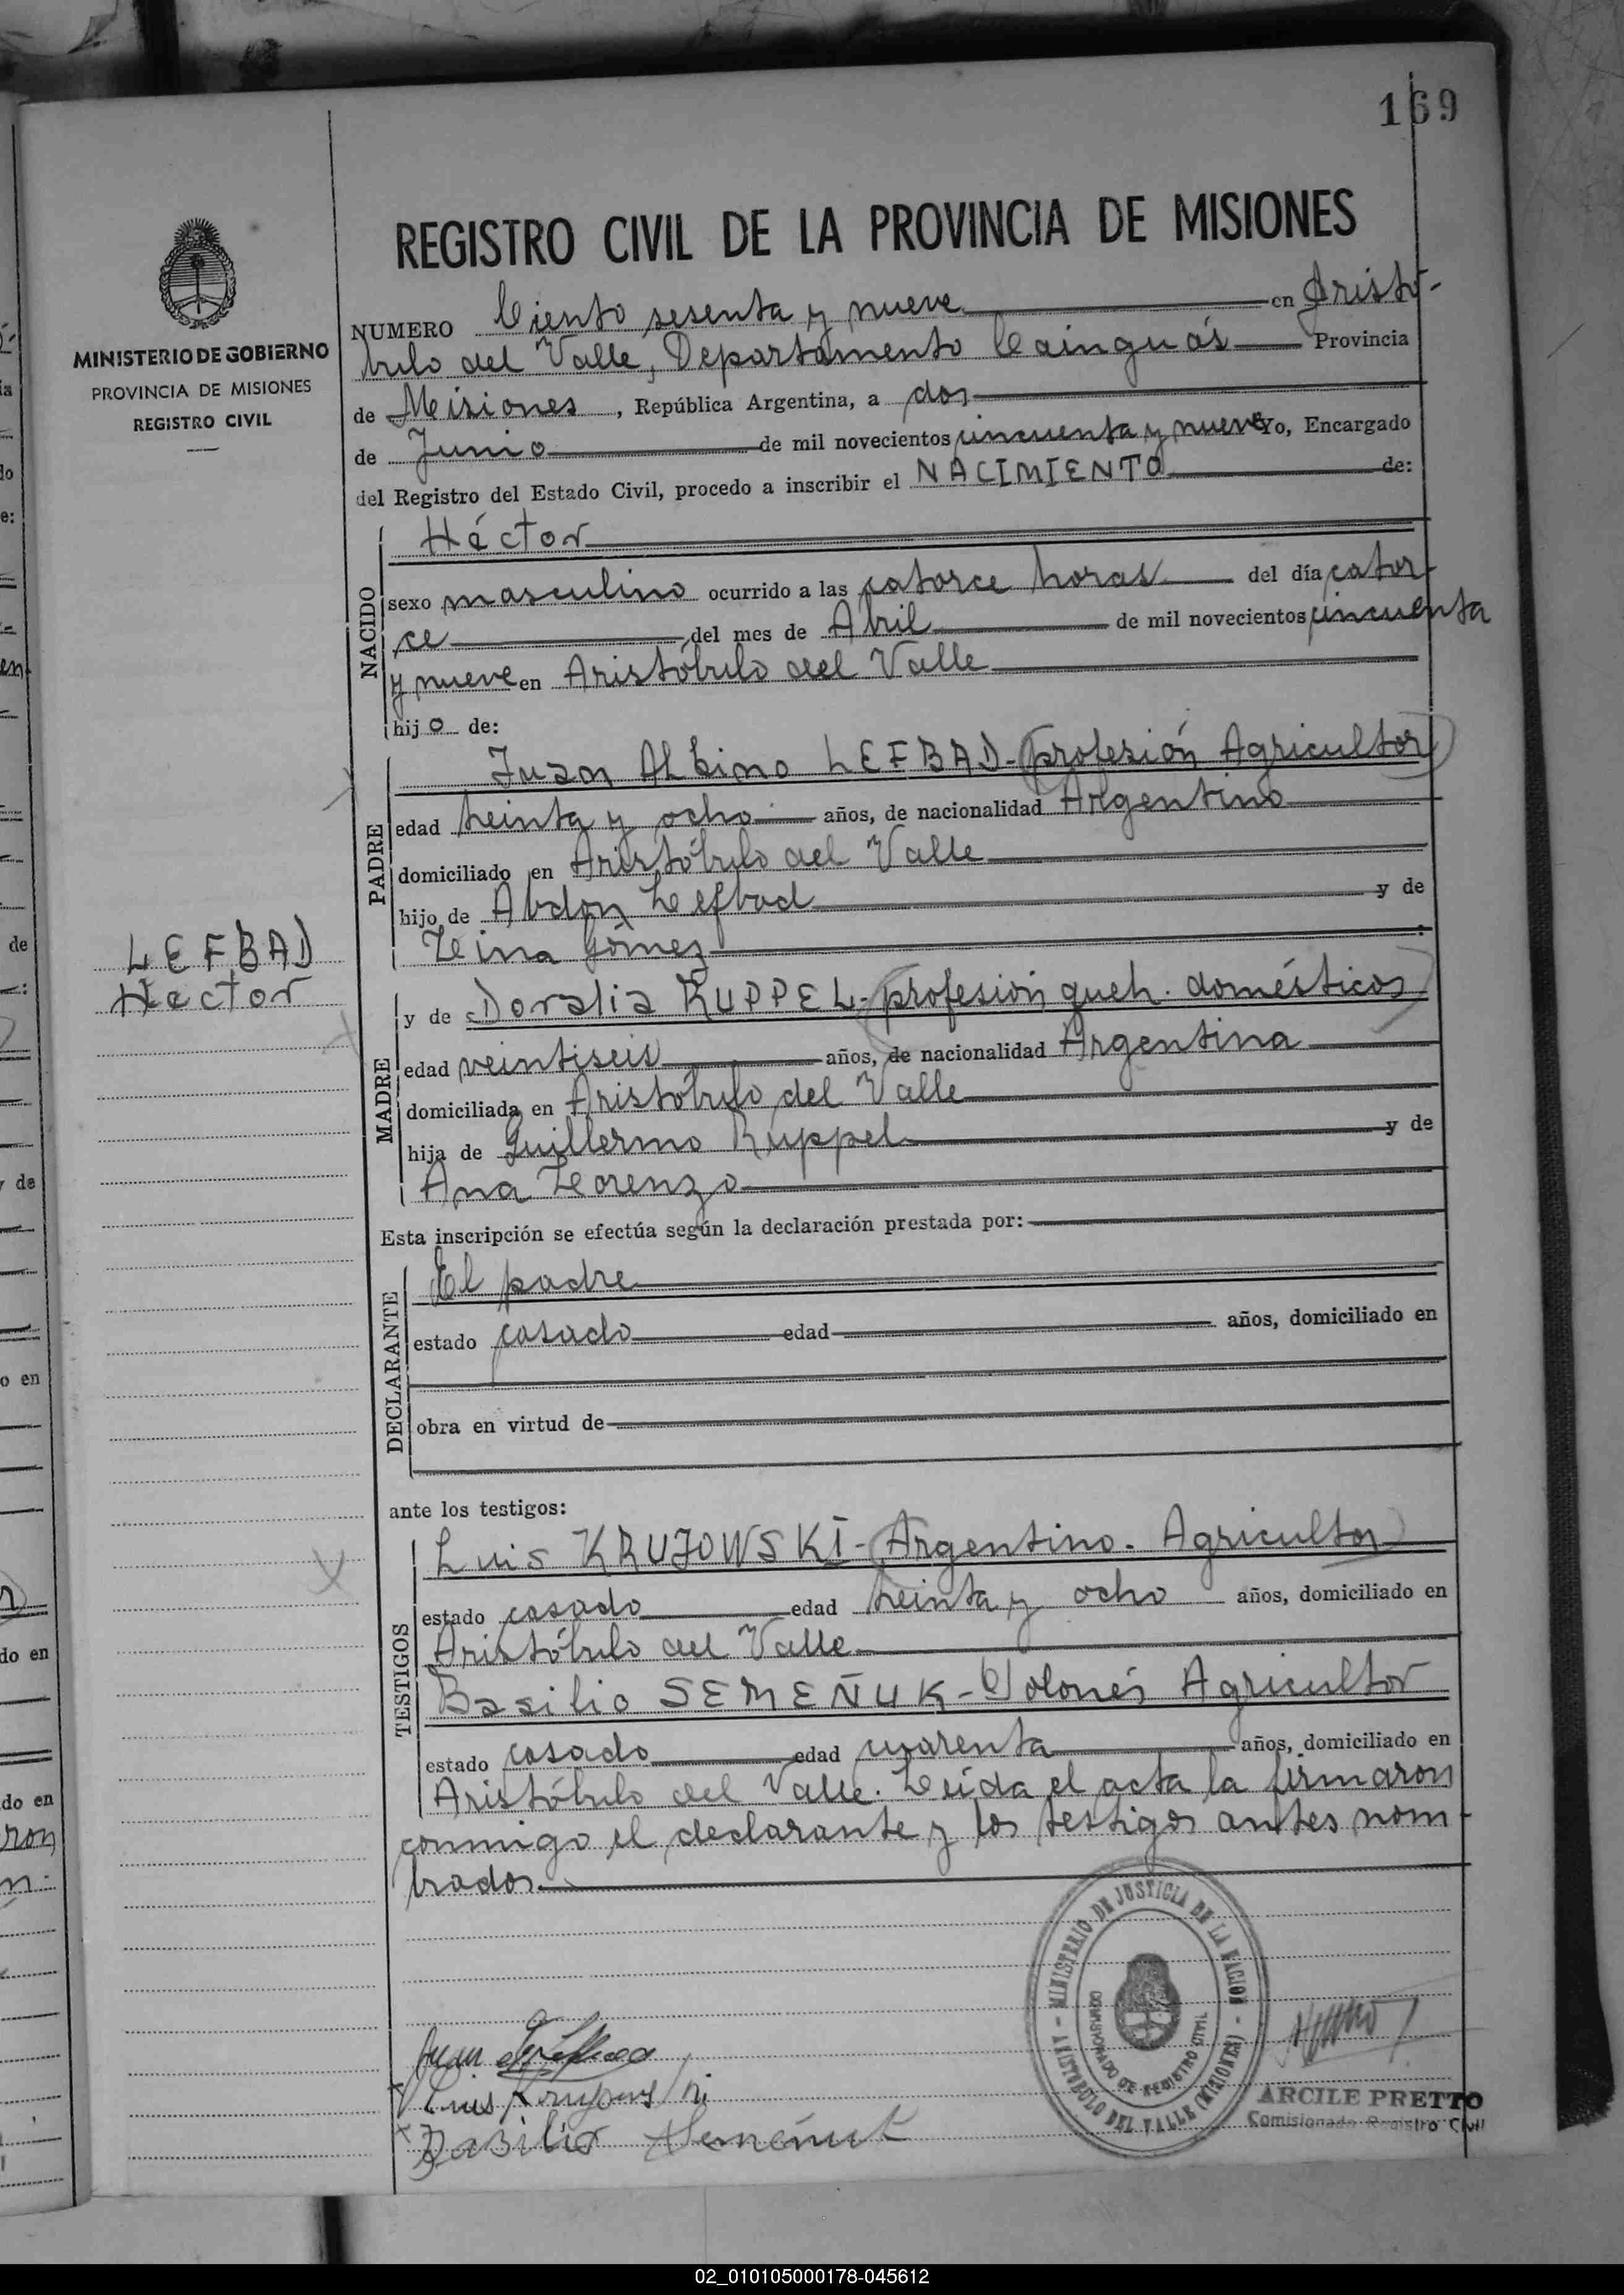 169
MINISTERIO DE GOBIERNO
PROVINCIA DE MISIONES
REGISTRO CIVIL
REGISTRO CIVIL DE LA PROVINCIA DE MISIONES
NUMERO Ciento sesenta y nueve en Aristó-
bulo del Valle, Departamento Cainguás Provincia
de Misiones, República Argentina, a dos
de Junio de mil novecientos cincuenta y nueve Yo, Encargado
del Registro del Estado Civil, procedo a inscribir el NACIMIENTO de:
NACIDO
Héctor
sexo masculino ocurrido a las catorce horas del día cator-
ce del mes de Abril de mil novecientos cincuenta
y nueve en Aristóbulo del Valle
hijo de:
PADRE
Juan Albino LEFBAD - (profesión Agricultor)
edad treinta y ocho años, de nacionalidad Argentino
domiciliado en Aristóbulo del Valle
hijo de Abdon Lefbad y de
Leina Gómez
LEFBAD
Hector
MADRE
y de Doralia RUPPEL - (profesión queh. domésticos)
edad veintiseis años, de nacionalidad Argentina
domiciliada en Aristóbulo del Valle
hija de Guillermo Ruppel y de
Ana Lorenzo
Esta inscripción se efectúa según la declaración prestada por:
DECLARANTE
El padre
estado casado edad años, domiciliado en
obra en virtud de
ante los testigos:
TESTIGOS
Luis KRUJOWSKI - (Argentino. Agricultor)
estado casado edad treinta y ocho años, domiciliado en
Aristóbulo del Valle
Basilio SEMEÑUK - Polonés Agricultor
estado casado edad cuarenta años, domiciliado en
Aristóbulo del Valle. Leída el acta la firmaron
conmigo el declarante y los testigos antes nom-
brados.
MINISTERIO DE JUSTICIA DE LA NACION - ARISTOBULO DEL VALLE (MISIONES) -
ENCARGADO DE REGISTRO CIVIL
Juan
Luis
Basilio Semeñuk
ARCILE PRETTO
Comisionado Registro Civil
02_010105000178-045612